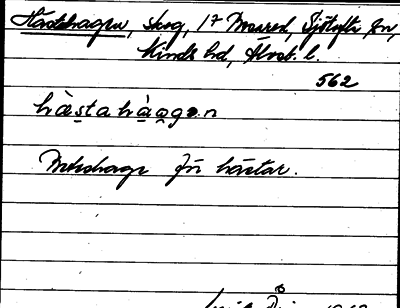 Hästehagen, skog, 17 Mared, Sjötofta sn,
Kinds hd, Älvsb. l.
562
hästahàagen
Beteshage för hästar.